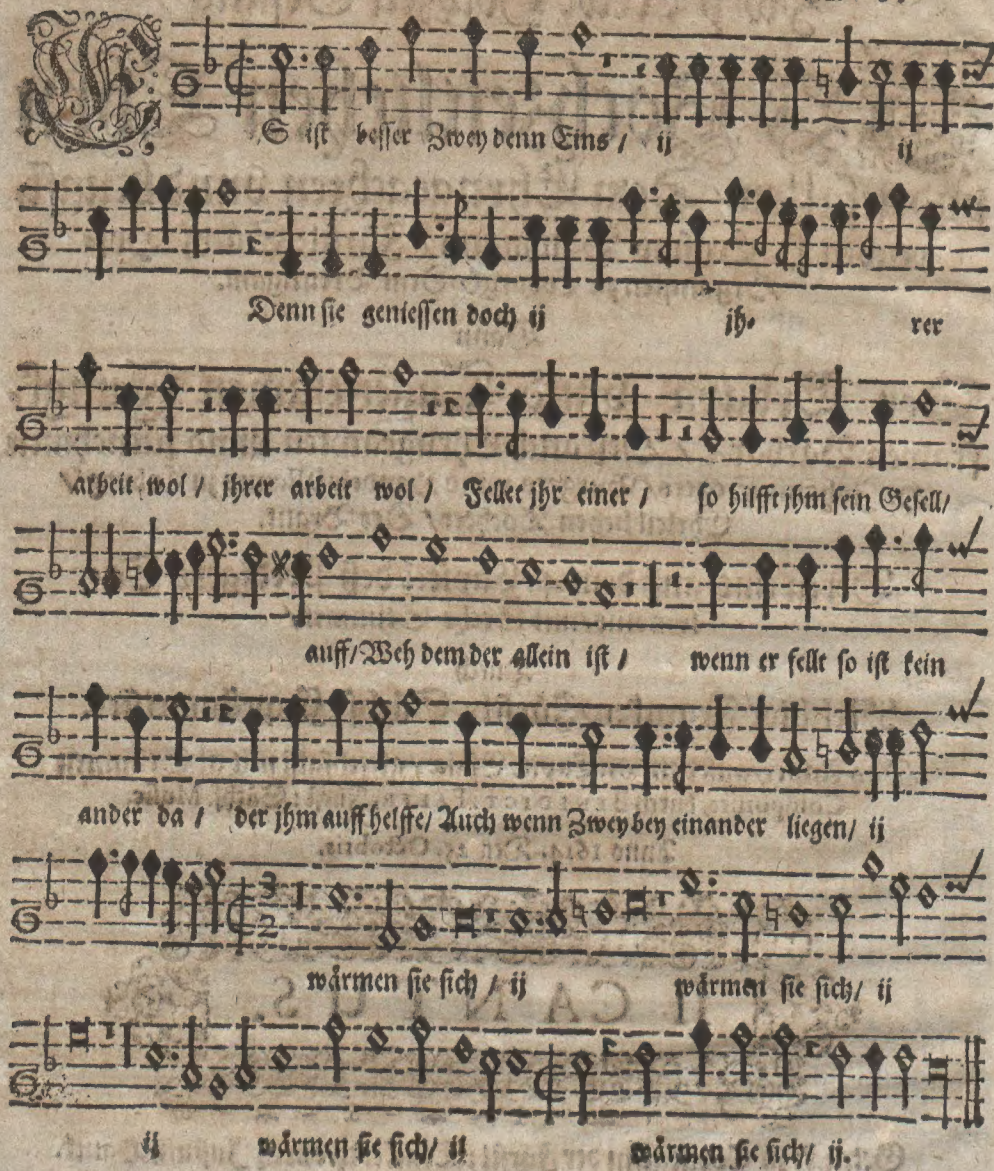 ES ist besser Zwey denn Eins / ij ij
Denn sie geniessen doch ij jh- rer
arbeit wol / jhrer arbeit wol / Fellet jhr einer / so hilfft jhm sein Gesell /
auff / Weh dem der allein ist / wenn er fellt so ist kein
ander da / der jhm auff helffe / Auch wenn Zwey bey einander liegen / ij
3
2
wärmen sie sich / ij wärmen sie sich / ij
ij wärmen sie sich / ij wärmen sie sich / ij.